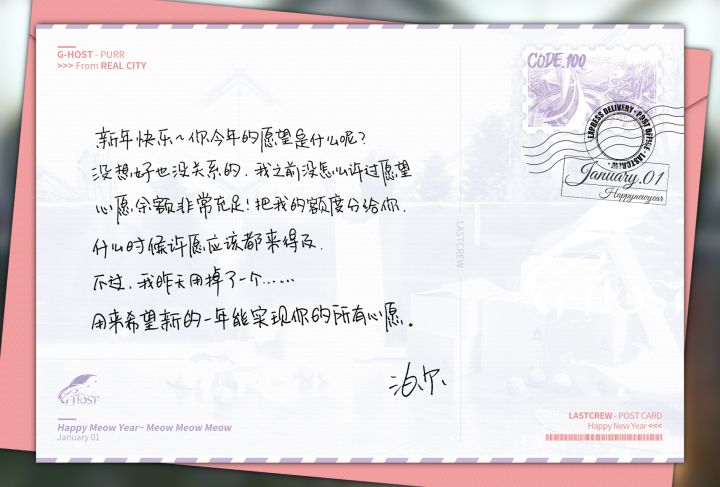 G-HOST - PURR
>>> From REAL CITY
CODE.100
EXPRESS DELIVERY · POST OFFICE · LASTCREW ·
January.01
Happynewyear
新年快乐~你今年的愿望是什么呢?
没想好也没关系的,我之前没怎么许过愿望
心愿余额非常充足!把我的额度分给你,
什么时候许愿应该都来得及.
不过,我昨天用掉了一个……
用来希望新的一年能实现你的所有心愿。
泊尔
LASTCREW
G-HOST
G-HOST
Happy Meow Year~ Meow Meow Meow
January 01
LASTCREW - POST CARD
Happy New Year <<<